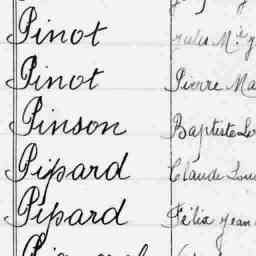 Pinot
Pinot Pierre Ma
Pinson Baptiste
Pipard Claude Lou
Pipard Félix Jean